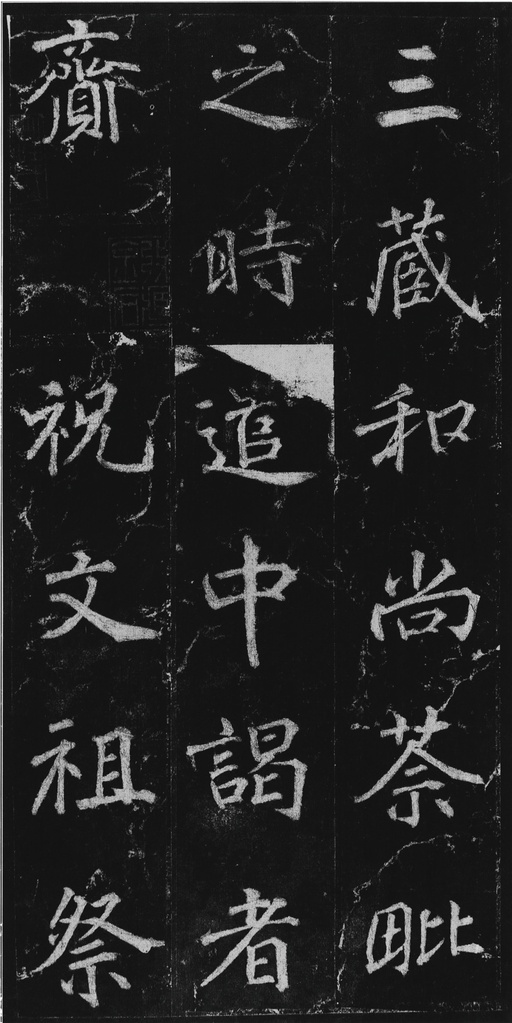 三藏和尚荼毗
之時追中謁者
齎祝文祖祭